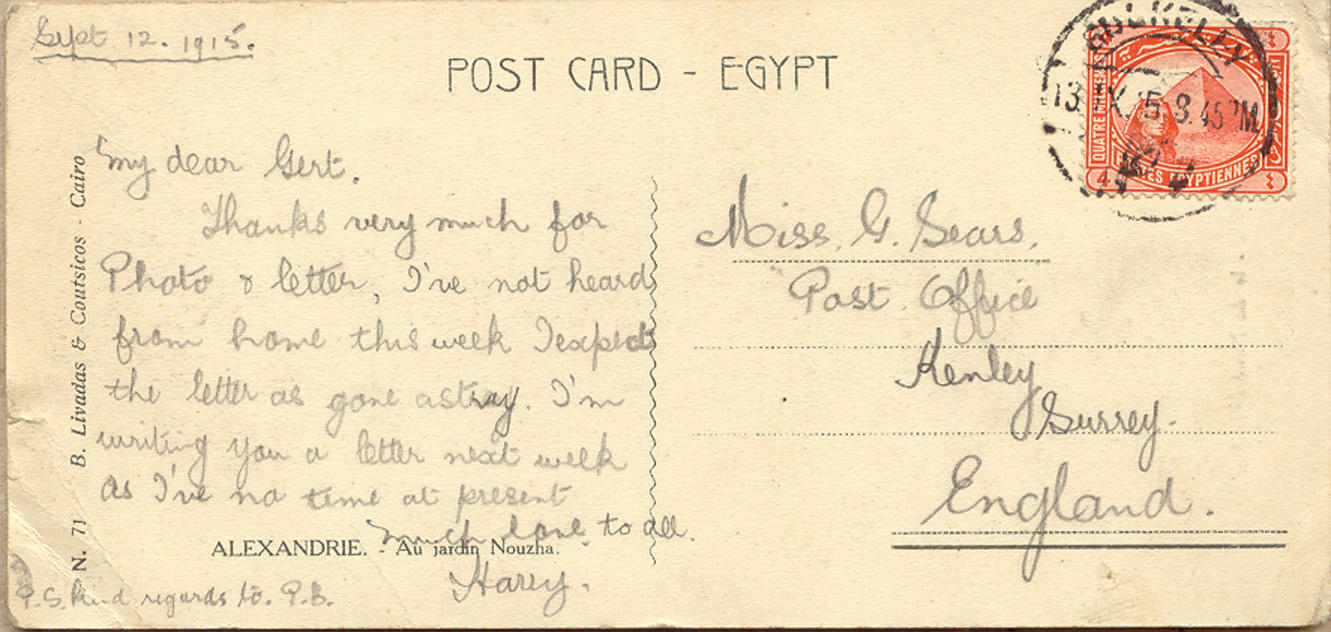 Sept 12. 1915.
POST CARD - EGYPT
BULKELEY
13. IX. 15. 8.45 PM
QUATRE MILLIEMES
POSTES EGYPTIENNES
4
٤
٤
My dear Gert.
Thanks very much for
Photo & letter, I've not heard
from home this week I expect
the letter as gone astray. I'm
writing you a letter next week
as I've no time at present
much love to all.
Harry.
P.S. Kind regards to. P.B.
ALEXANDRIE. - Au jardin Nouzha.
N. 71 B. Livadas & Coutsicos - Cairo
Miss. G. Sears.
Post Office
Kenley
Surrey.
England.